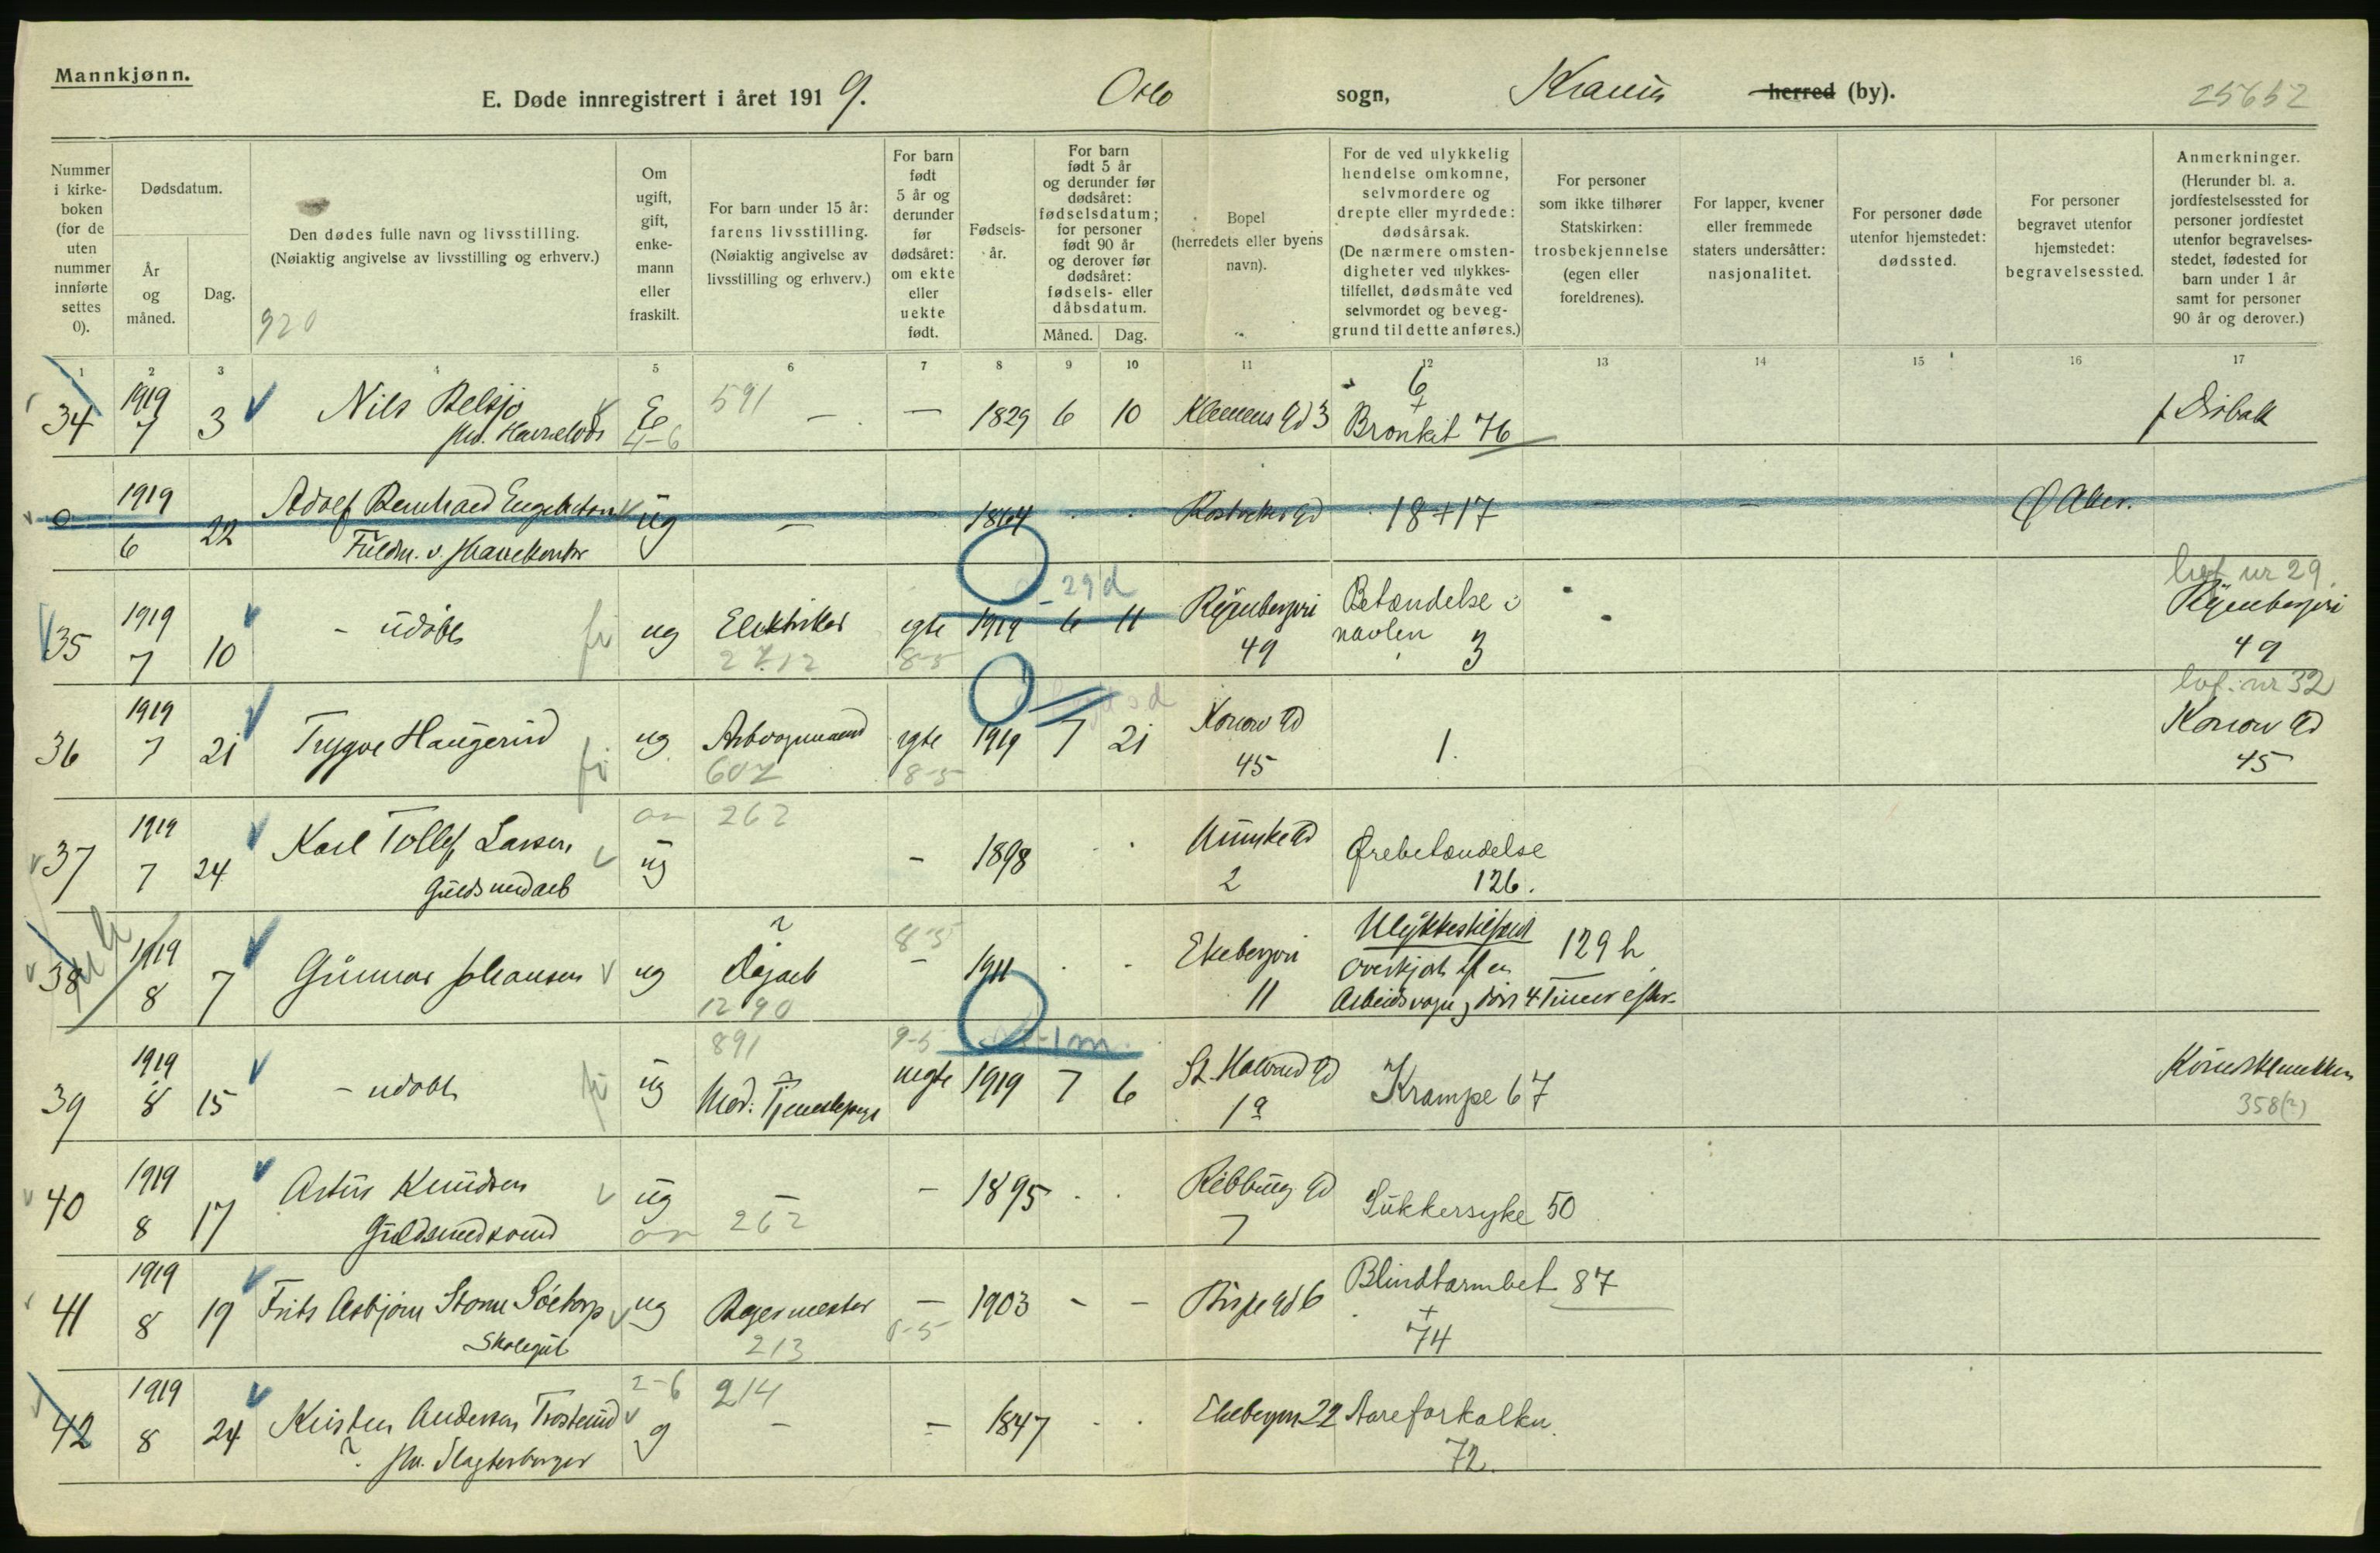 Mannkjønn.
E. Døde innregistrert i året 1919. Oslo sogn, herred (by). 25652
Nummer i kirke- boken (for de uten nummer innførte settes 0).
Dødsdatum.
År og måned.
Dag.
Den dødes fulle navn og livsstilling.
(Nøiaktig angivelse av livsstilling og erhverv.)
920
Om ugift, gift, enke- mann eller fraskilt.
For barn under 15 år: farens livsstilling. (Nøiaktig angivelse av livsstilling og erhverv.)
For barn født 5 år og derunder før dødsåret: om ekte eller uekte født.
Fødsels- år.
For barn født 5 år og derunder før dødsåret: fødselsdatum; for personer født 90 år og derover før dødsåret: fødsels- eller dåbsdatum.
Måned. Dag.
Bopel (herredets eller byens navn).
For de ved ulykkelig hendelse omkomne, selvmordere og drepte eller myrdede: dødsårsak. (De nærmere omsten- digheter ved ulykkes- tilfellet, dødsmåte ved selvmordet og beveg- grund til dette anføres.)
For personer som ikke tilhører Statskirken: trosbekjennelse (egen eller foreldrenes).
For lapper, kvener eller fremmede staters undersåtter: nasjonalitet.
For personer døde utenfor hjemstedet: dødssted.
For personer begravet utenfor hjemstedet: begravelsessted.
Anmerkninger. (Herunder bl. a. jordfestelsessted for personer jordfestet utenfor begravelses- stedet, fødested for barn under 1 år samt for personer 90 år og derover.)
1 2 3 4 5 6 7 8 9 10 11 12 13 14 15 16 17
34 1919 7 3 Nils Belsjø E 4-6 591 — — 1829 6 10 Klemens Gd 3 6 + Bronkit 76 f Drøbak
0 1919 6 22 Adolf Bernhard Engebretsen ug — — 1864 18+17 Aker.
Fuldm. v. Havnekontor
35 1919 7 10 - udøbt ug Elektriker 2712 egte 8-5 29d 1919 6 11 Ryenbergvei 49 Betændelse i navlen 3 nr 29 Ryenbergvei 49
36 1919 7 21 Trygve Haugerud ug Arbvognmand 607 egte 8-5 1919 7 21 Konow Gd 45 1. nr 32 Konow Gd 45
37 1919 7 24 Karl Tollef Larsen ug 262 - 1898 Munke Gd 2 Ørebetændelse 126.
Guldsmedarb
38 1919 8 7 Gunnar Johansen ug Dagarb 1290 8-5 - 1911 Ekebergvei 11 Ulykkestilfæld 129 h
Overkjørt af en
Arbeidsvogn, død 4 Timer efter.
39 1919 8 15 - udøbt ug 891 Mod: Tjenestepige 9-5 uegte 1m. 1919 7 6 St. Halvard Gd 1a Krampe 67 358(2)
40 1919 8 17 Artur Knudsen ug — 262 - 1895 Ribbung Gd 7 Sukkersyke 50
Guldsmedsvend
41 1919 8 19 Frits Asbjørn Storm ug Bagermester 213 — 1903 - - Bispe Gd 6 Blindtarmbet 87 + 74
Skolegut
42 1919 8 24 Kristen Andersen Trosterud 2-6 g 214 - - 1847 Ekebergvn 22 Aareforkalkn. 72.
Slagterborger